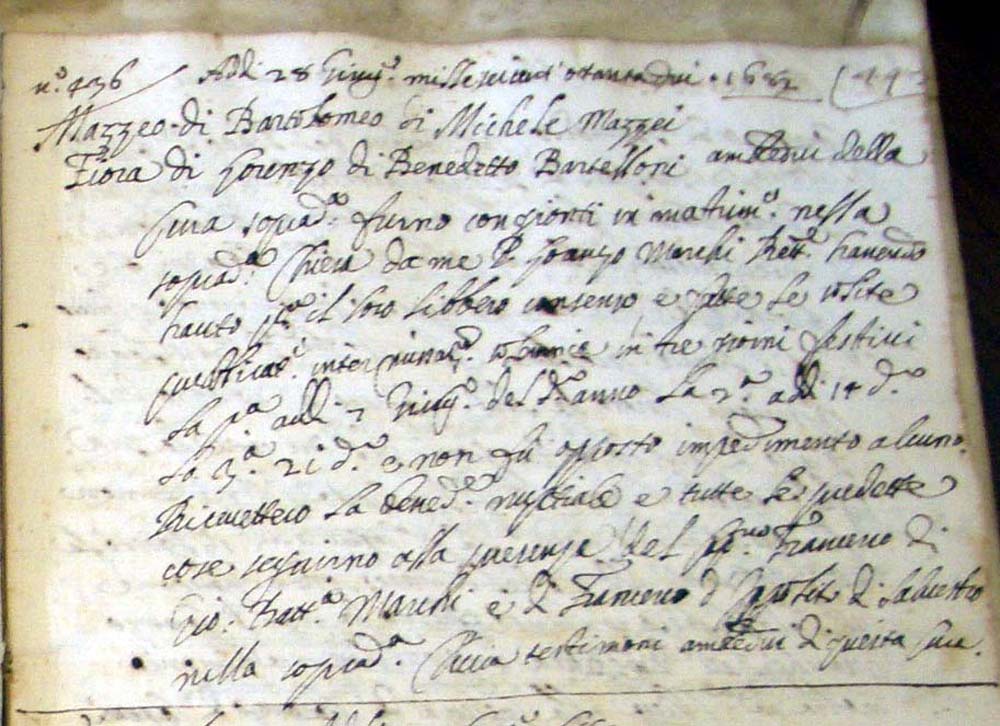 n.° 436 Addi 28 Giug.° mille seicent' otanta dui 1682
Mazzeo di Bartolomeo di Michele Mazzei
Fiora di Lorenzo di Benedetto Bartelloni ambedui della
Cura soprad.ª furno congionti in matrim.° nella
soprad.ª Chiesa da me P. Lorenzo Marchi Rett.e havendo
hauto p.ª il loro libbero consenso e fatte le solite
in tre giorni festivi
la p.ª addi 7 Giug.° del d.° anno la 2.ª addi 14 d.°
la 3.ª 21 d.° e non fù opposto impedimento alcuno.
Riceuettero la bened.e nuptiale e tutte le predette
cose seguirno alla presenza del Francesco di
Gio. Batt.ª Marchi e di Francesco d' Ippolito di
nella soprad.ª Chiesa testimoni ambedui di questa Cura.